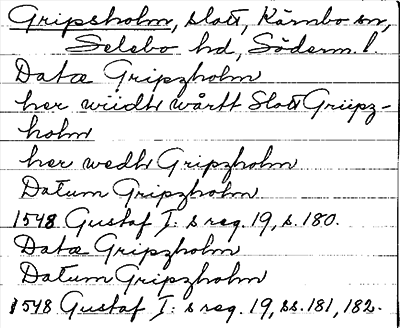 Gripsholm, slott, Kärnbo sn,
Selebo hd, Söderm. l.
Datæ Gripzholm
her wiidh wårtt Slott Griipz-
holm
her wedh Gripzholm
Datum Gripzholm
1548 Gustaf I: s reg. 19, s. 180.
Datæ Gripzholm
Datum Gripzholm
1548 Gustaf I: s reg. 19, ss. 181, 182.